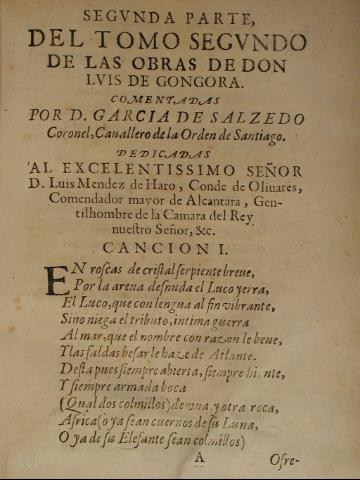 SEGVNDA PARTE,
DEL TOMO SEGVNDO
DE LAS OBRAS DE DON
LVIS DE GONGORA.
COMENTADAS
POR D. GARCIA DE SALZEDO
Coronel, Cauallero de la Orden de Santiago.
DEDICADAS
AL EXCELENTISSIMO SEÑOR
D. Luis Mendez de Haro, Conde de Oliuares,
Comendador mayor de Alcantara, Gen-
tilhombre de la Camara del Rey
nuestro Señor, &c.
CANCION I.
EN roscas de cristal serpiente breue,
Por la arena desnuda el Luco yerra,
El Luco, que con lengua al fin vibrante,
Sino niega el tributo, intima guerra
Al mar, que el nombre con razon le beue,
Y las faldas besar le haze de Atlante.
Desta pues siempre abierta, siempre hiante,
Y siempre armada boca
(Qual dos colmillos) de vna, y otra roca,
Africa (o ya sean cuernos de su Luna,
O ya de su Elefante sean colmillos)
A
Ofre-